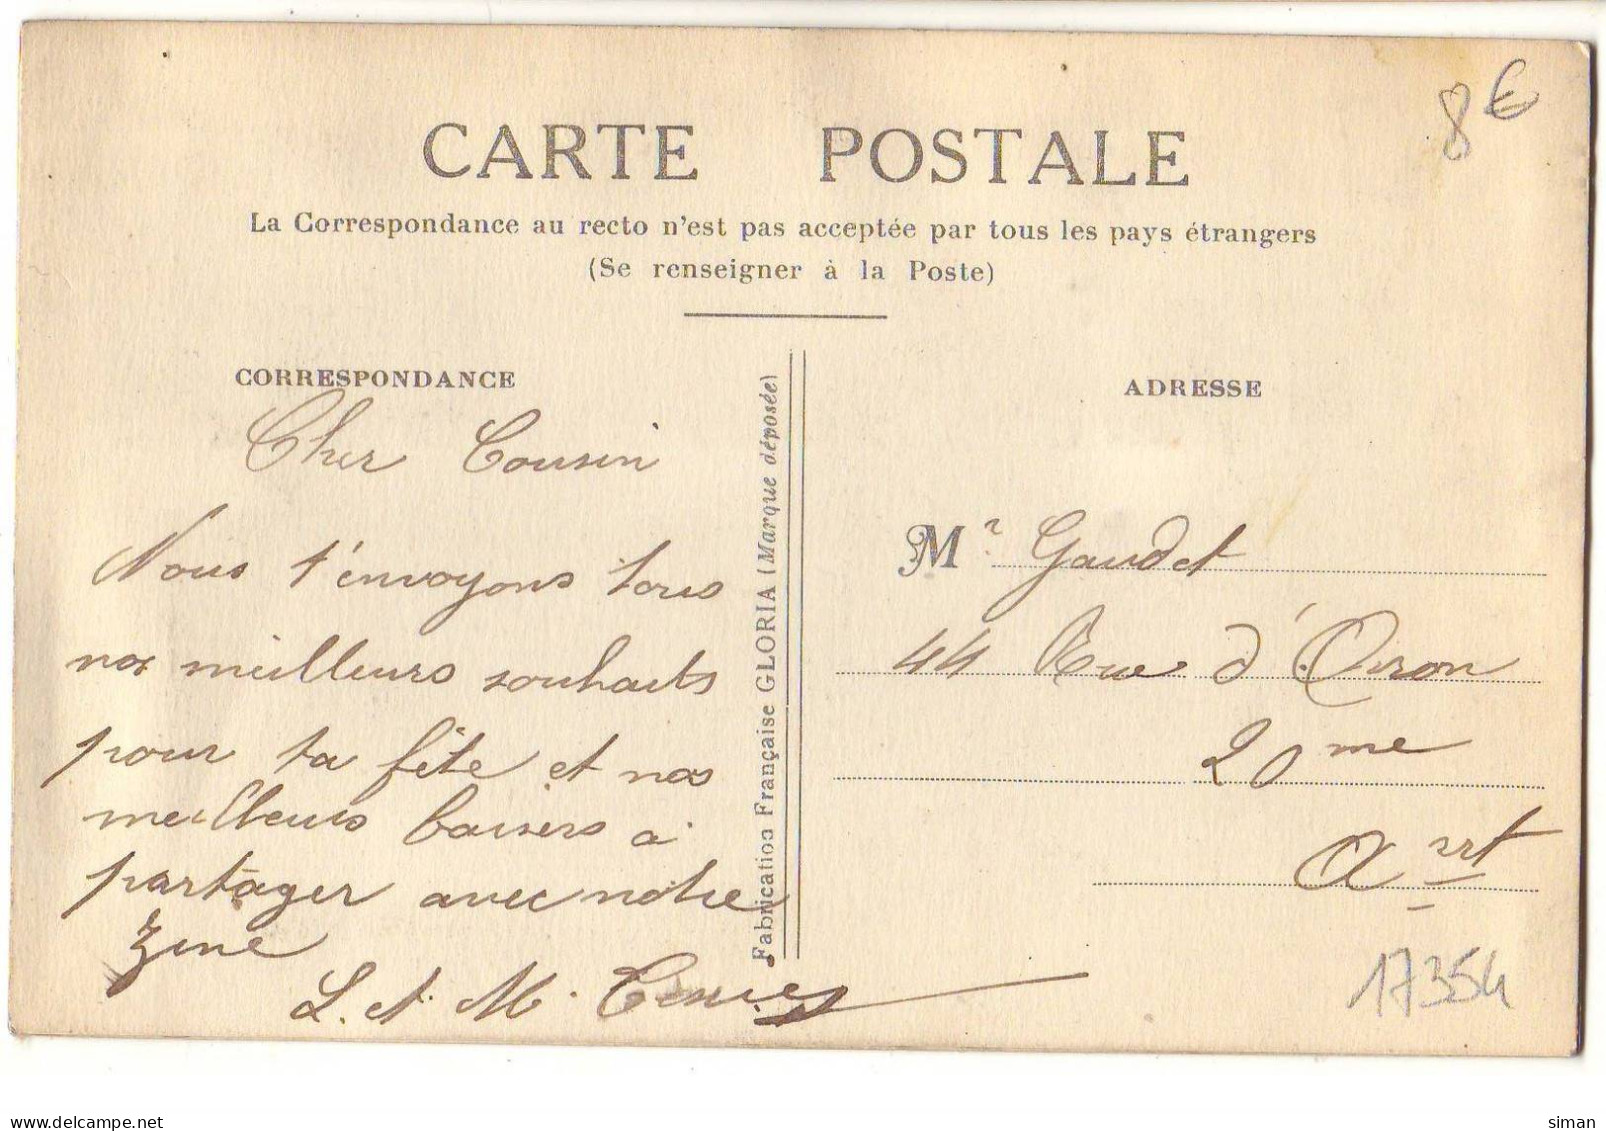 CARTE POSTALE
La Correspondance au recto n'est pas acceptée par tous les pays étrangers
(Se renseigner à la Poste)
8€
CORRESPONDANCE
Cher Cousin
Nous t'envoyons tous
nos meilleurs souhaits
pour ta fête et nos
meilleurs baisers à
partager avec notre
L. et M.
Fabrication Française GLORIA (Marque déposée)
ADRESSE
Mr. Gaudet
44 Rue d'
20me
Arrt
17354
delcampe.net
siman